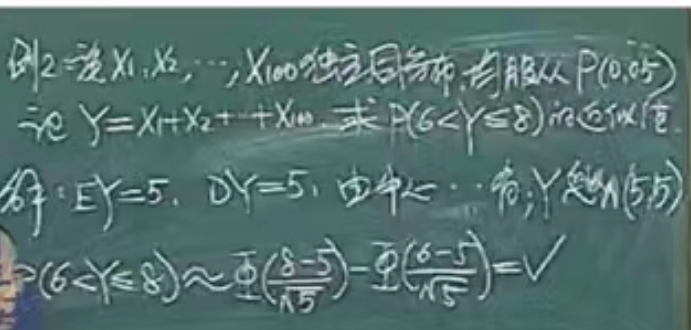 例2:设X₁,X₂,…,X₁₀₀独立同分布,均服从P(0.05)
记Y=X₁+X₂+…+X₁₀₀.求P(6<Y≤8)的近似值.
解:EY=5,DY=5,由中心…有:Y N(5,5)
P(6<Y≤8)≈Φ((8-5)/√5)-Φ((6-5)/√5)=√